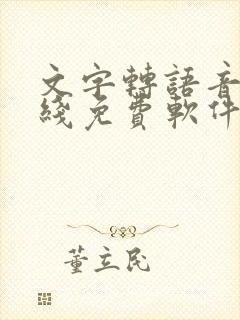 文字轉語音
綫免費軟件
董立民